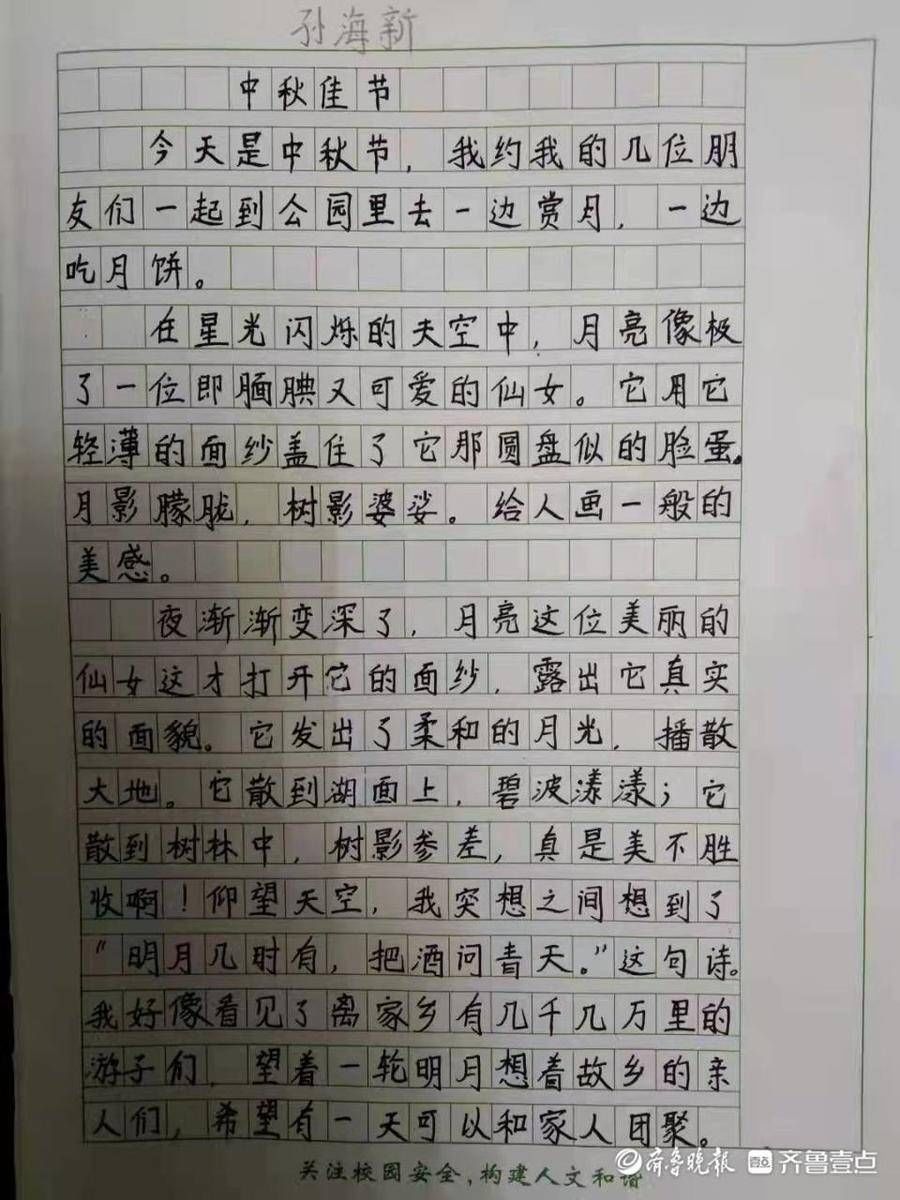 孙海新
中秋佳节
今天是中秋节，我约我的几位朋
友们一起到公园里去一边赏月，一边
吃月饼。
在星光闪烁的天空中，月亮像极
了一位即腼腆又可爱的仙女。它用它
轻薄的面纱盖住了它那圆盘似的脸蛋。
月影朦胧，树影婆娑。给人画一般的
美感。
夜渐渐变深了，月亮这位美丽的
仙女这才打开它的面纱，露出它真实
的面貌。它发出了柔和的月光，播散
大地。它散到湖面上，碧波漾漾；它
散到树林中，树影参差，真是美不胜
收啊！仰望天空，我突想之间想到了
“明月几时有，把酒问青天。”这句诗。
我好像看见了离家乡有几千几万里的
游子们，望着一轮明月想着故乡的亲
人们，希望有一天可以和家人团聚。
关注校园安全，构建人文和谐
齐鲁晚报 齐鲁壹点